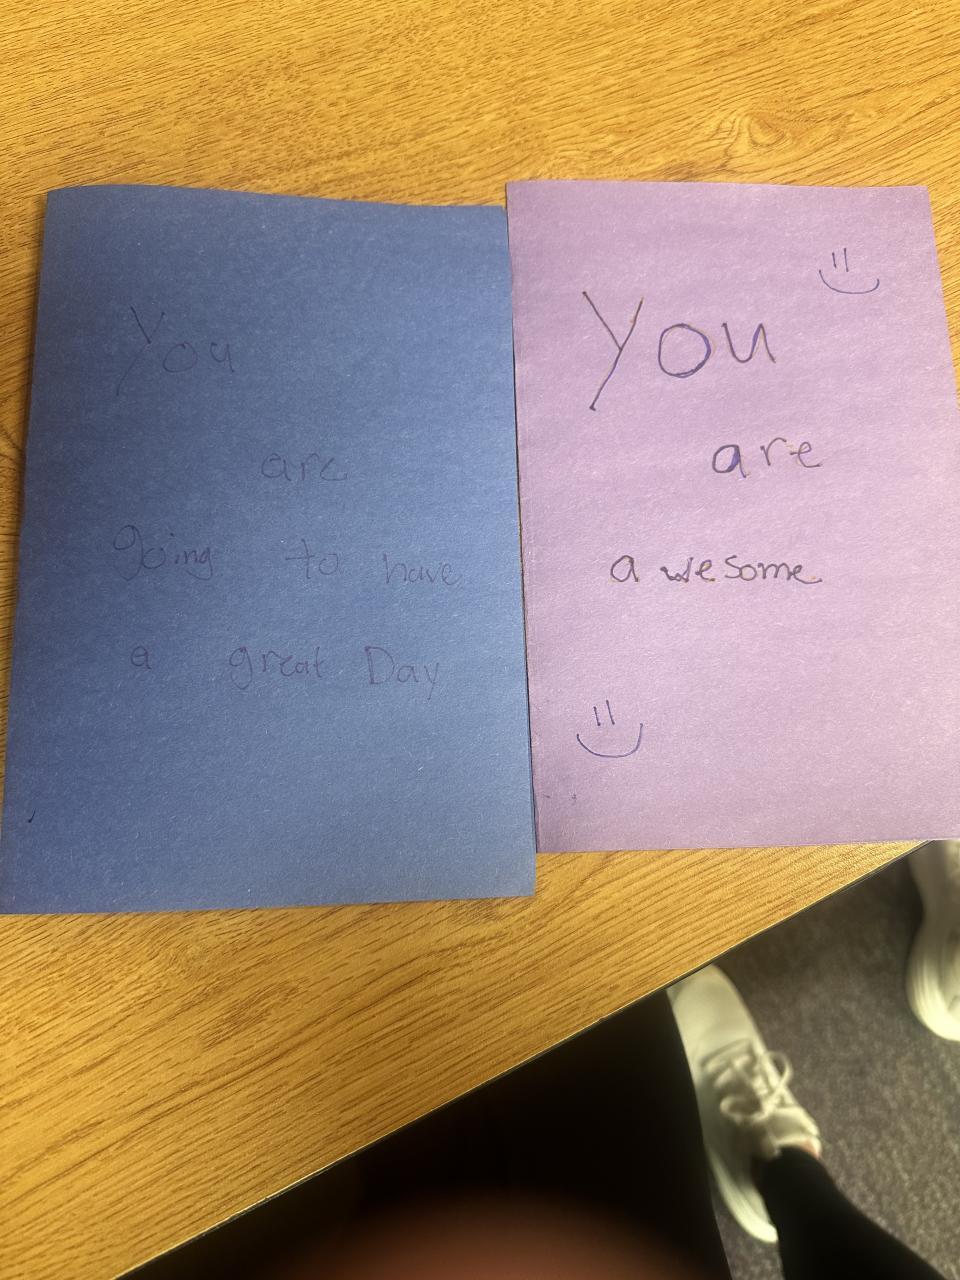 You
are
going to have
a great Day
You
are
awesome